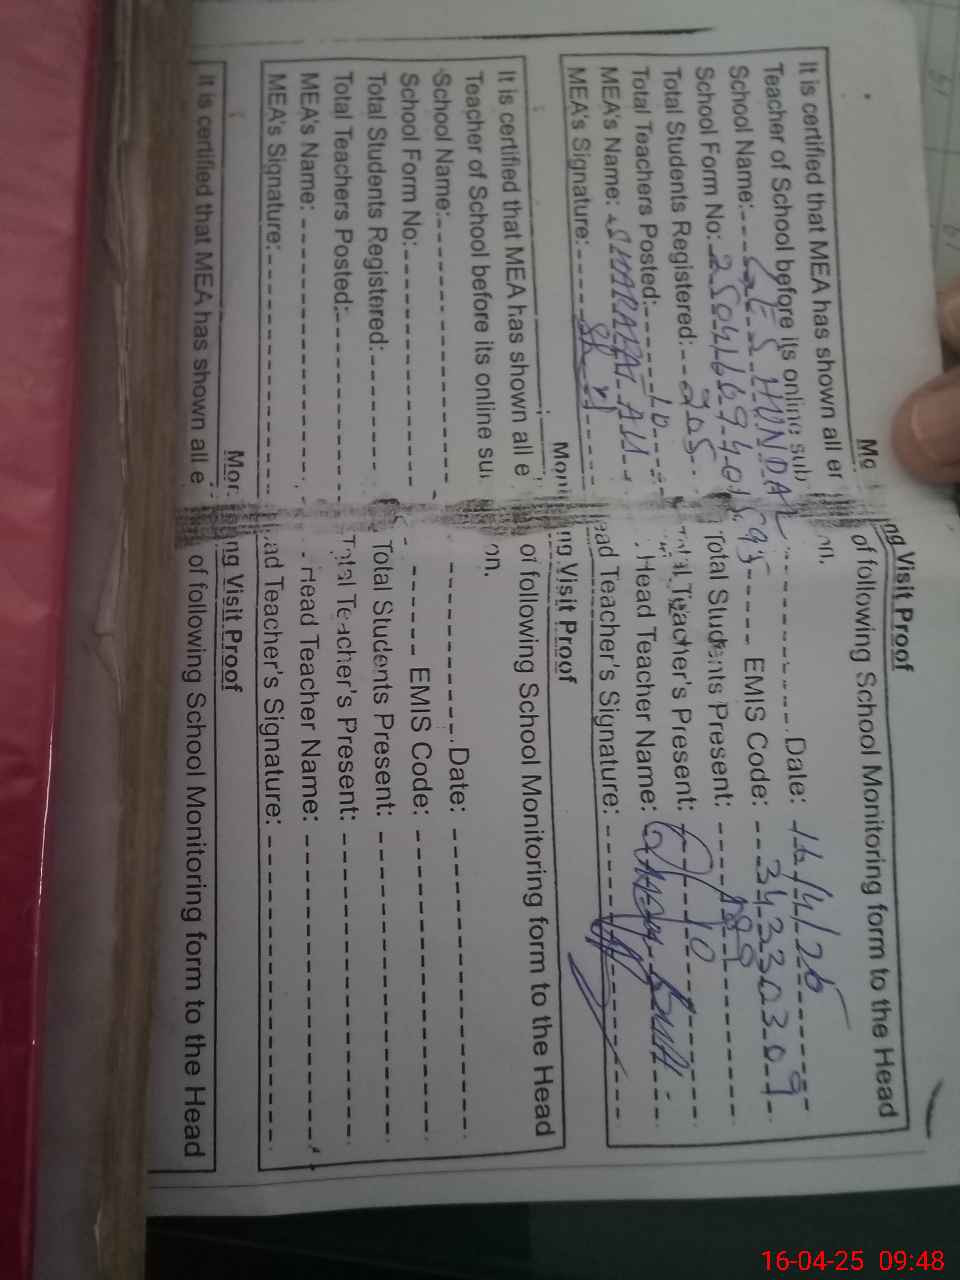 Mo ng Visit Proof
It is certified that MEA has shown all er of following School Monitoring form to the Head
Teacher of School before its online sub on.
School Name: HUNDAL Date: 16/4/25
School Form No: EMIS Code: 34230309
Total Students Registered: 205 Total Students Present: 189
Total Teachers Posted: 10 Total Teacher's Present: 10
MEA's Name: SHARAFAT ALI Head Teacher Name:
MEA's Signature: ead Teacher's Signature:
Moni ng Visit Proof
It is certified that MEA has shown all e of following School Monitoring form to the Head
Teacher of School before its online su on.
School Name: Date:
School Form No: EMIS Code:
Total Students Registered: Total Students Present:
Total Teachers Posted: Total Teacher's Present:
MEA's Name: Head Teacher Name:
MEA's Signature: ad Teacher's Signature:
Mor ng Visit Proof
It is certified that MEA has shown all e of following School Monitoring form to the Head
16-04-25 09:48